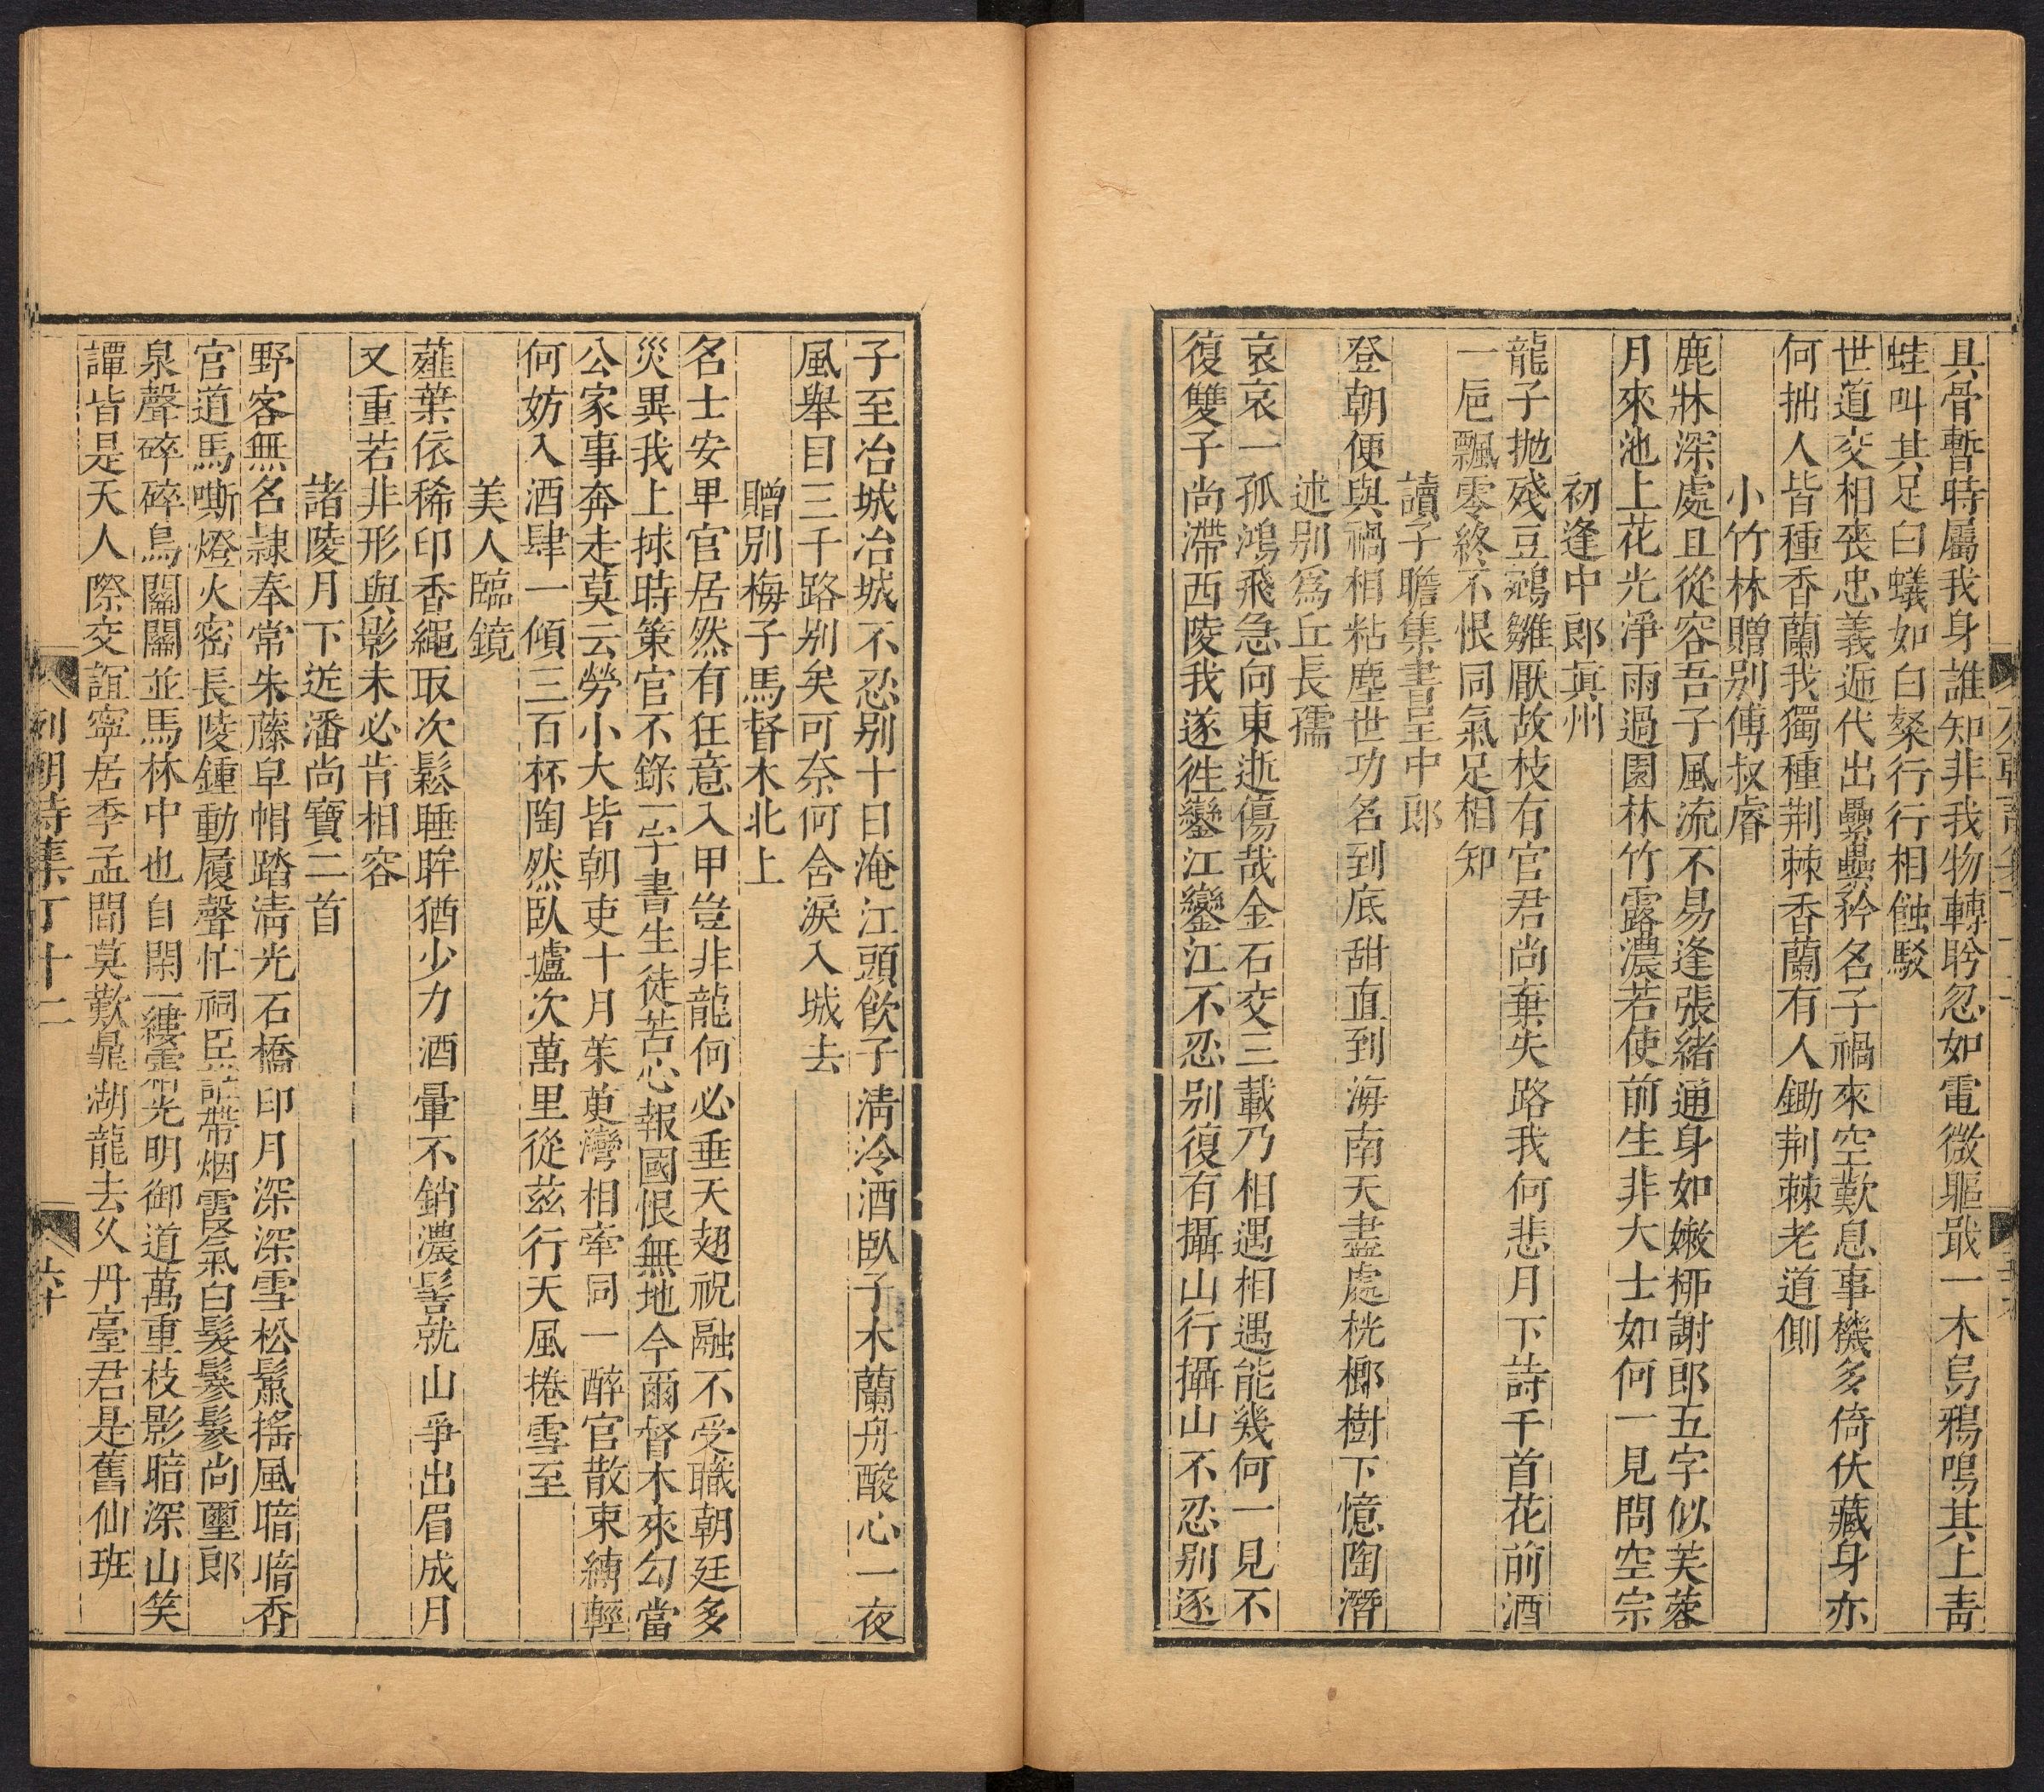 具骨暫時屬我身誰知非我物轉盻忽如電微軀戢一木烏鴉鳴其上靑
蛙叫其足白蟻如白粲行行相蝕駁
世道交相喪忠義遞代出纍纍矜名子禍來空歎息事機多倚伏藏身亦
何拙人皆種香蘭我獨種荆棘香蘭有人鋤荆棘老道側
小竹林贈别傅叔睿
鹿牀深處且從容吾子風流不易逢張緒通身如嫩桺謝郎五字似芙蓉
月來池上花光淨雨過園林竹露濃若使前生非大士如何一見問空宗
初逢中郎眞州
龍子抛殘豆鵶雛厭故枝有官君尚棄失路我何悲月下詩千首花前酒
一巵飄零終不恨同氣足相知
讀子瞻集書呈中郎
登朝便與禍相粘塵世功名到底甜直到海南天盡處桄榔樹下憶陶潛
述别爲丘長孺
哀哀一孤鴻飛急向東逝傷哉金石交三載乃相遇相遇能幾何一見不
復雙子尚滯西陵我遂徃鑾江鑾江不忍别復有攝山行攝山不忍别逐
子至冶城冶城不忍别十日淹江頭飮子淸泠酒臥子木蘭舟酸心一夜
風舉目三千路别矣可奈何舍淚入城去
贈别梅子馬督木北上
名士安卑官居然有狂意入甲豈非龍何必垂天翅祝融不受職朝廷多
災異我上捄時策官不錄一字書生徒苦心報國恨無地今爾督木來勾當
公家事奔走莫云勞小大皆朝吏十月茱萸灣相牽同一醉官散束縛輕
何妨入酒肆一傾三百杯陶然臥壚次萬里從茲行天風捲雪至
美人臨鏡
薤葉依稀印香繩取次鬆睡眸猶少力酒暈不銷濃髻就山爭出眉成月
又重若非形與影未必肯相容
諸陵月下逆潘尚寶二首
野客無名隸奉常朱藤皁帽踏淸光石橋印月深深雪松鬣搖風暗暗香
官道馬嘶燈火密長陵鍾動履聲忙祠臣帶烟霞氣白髮鬖鬖尚璽郎
泉聲碎碎鳥關關並馬林中也自閑一縷光明御道萬重枝影暗深山笑
譚皆是天人際交誼寧居季孟間莫歎鼎湖龍去久丹臺君是舊仙班
列朝詩集丁十二